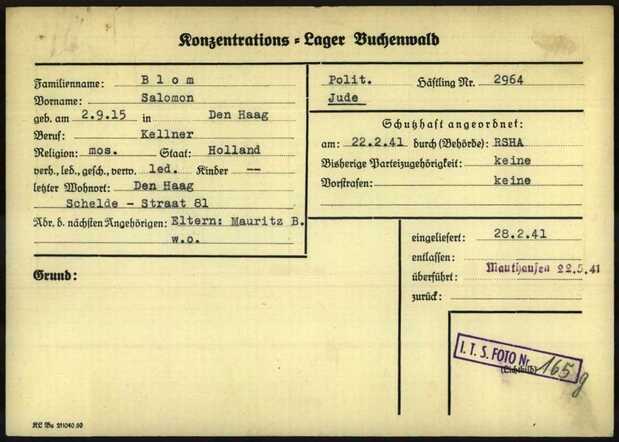 Konzentrations-Lager Buchenwald
Familienname: Blom
Vorname: Salomon
geb. am 2.9.15 in Den Haag
Beruf: Kellner
Religion: mos. Staat: Holland
verh., led., gesch., verw. led. Kinder --
letzter Wohnort: Den Haag
Schelde - Straat 81
Adr. d. nächsten Angehörigen: Eltern: Mauritz B.
w.o.
Grund:
Polit.
Jude
Häftling Nr. 2964
Schutzhaft angeordnet:
am: 22.2.41 durch (Behörde): RSHA
Bisherige Parteizugehörigkeit: keine
Vorstrafen: keine
eingeliefert: 28.2.41
entlassen:
überführt: Mauthausen 22.5.41
zurück:
I.T.S. FOTO Nr. 165
(Lichtbild)